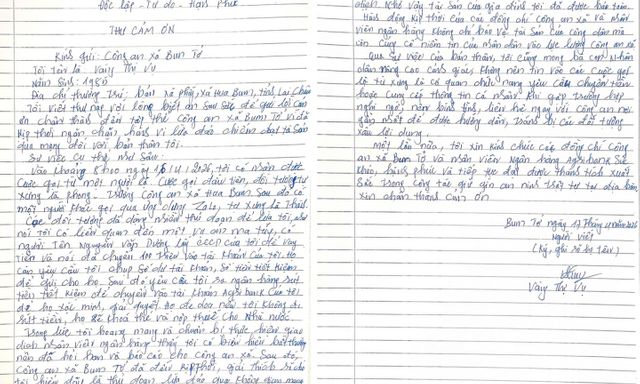 Độc lập - Tự do - Hạnh Phúc
THƯ CẢM ƠN
Kính gửi: Công an xã Bum Tở
Tôi tên là Vàng Thị Vụ
Năm sinh: 1985
Địa chỉ thường trú: bản xà phây, xã Bum, tỉnh Lai Châu
Tôi viết thư này với lòng biết ơn sâu sắc để gửi lời cảm
ơn chân thành đến tập thể công an xã Bum Tở vì đã
kịp thời ngăn chặn hành vi lừa đảo chiếm đoạt tài sản
qua mạng đối với bản thân tôi.
Sự việc cụ thể như sau:
Vào khoảng 8h00 ngày 16/4/2026, tôi có nhận được
cuộc gọi từ một người lạ. Cuộc gọi đầu tiên, đối tượng tự
xưng là phong - Trưởng công an xã Bum. Sau đó có
một người khác gọi qua ứng dụng Zalo, tự xưng là Thái
Các đối tượng đã dùng nhiều thủ đoạn để lừa tôi, như
nói tôi có liên quan đến một vụ án ma túy, có
người tên Nguyễn Văn Dương lấy CCCD của tôi để vay
tiền và nói đã chuyển triệu vào tài khoản của tôi. Họ
còn yêu cầu tôi chụp số dư tài khoản, sổ tiền tiết kiệm
để gửi cho họ. Sau đó yêu cầu tôi ra ngân hàng rút
tiền tiết kiệm để chuyển vào tài khoản Agribank của tôi
để họ xác minh, giải quyết họ đe dọa nếu tôi không đi
rút tiền, họ sẽ khóa thẻ và nộp thuế cho Nhà nước.
Trong lúc tôi hoang mang và chuẩn bị thực hiện giao
dịch nhân viên ngân hàng thấy tôi có biểu hiện bất thường
nên đã hỏi han và báo cáo cho công an xã. Sau đó,
công an xã Bum Tở đã đến kịp thời, giải thích rõ cho
tôi hiểu đây là thủ đoạn lừa đảo qua không gian mạng
định. Nhờ vậy tài sản của gia đình tôi đã được bảo toàn.
Hành động kịp thời của các đồng chí công an xã và nhân
viên ngân hàng không chỉ bảo vệ tài sản của công dân mà
còn củng cố niềm tin của nhân dân vào lực lượng công an xã
Qua sự việc của bản thân, tôi cũng mong bà con nhân
dân nâng cao cảnh giác, không nên tin vào các cuộc gọi
lạ tự xưng là cơ quan chức năng yêu cầu chuyển tiền
hoặc cung cấp thông tin cá nhân. Khi gặp trường hợp
nghi ngờ, nên bình tĩnh, liên hệ ngay với công an nơi
gần nhất để được hướng dẫn, tránh bị các đối tượng
xấu lợi dụng.
Một lần nữa, tôi xin kính chúc các đồng chí công
an xã Bum Tở và nhân viên Ngân hàng agribank sức
khỏe, hạnh phúc và tiếp tục đạt được thành tích xuất
sắc trong công tác giữ gìn an ninh trật tự tại địa bàn,
xin chân thành cảm ơn
Bum Tở ngày 17 tháng 4 năm 2026
Người viết
(Ký, ghi rõ họ tên)
Vàng Thị Vụ